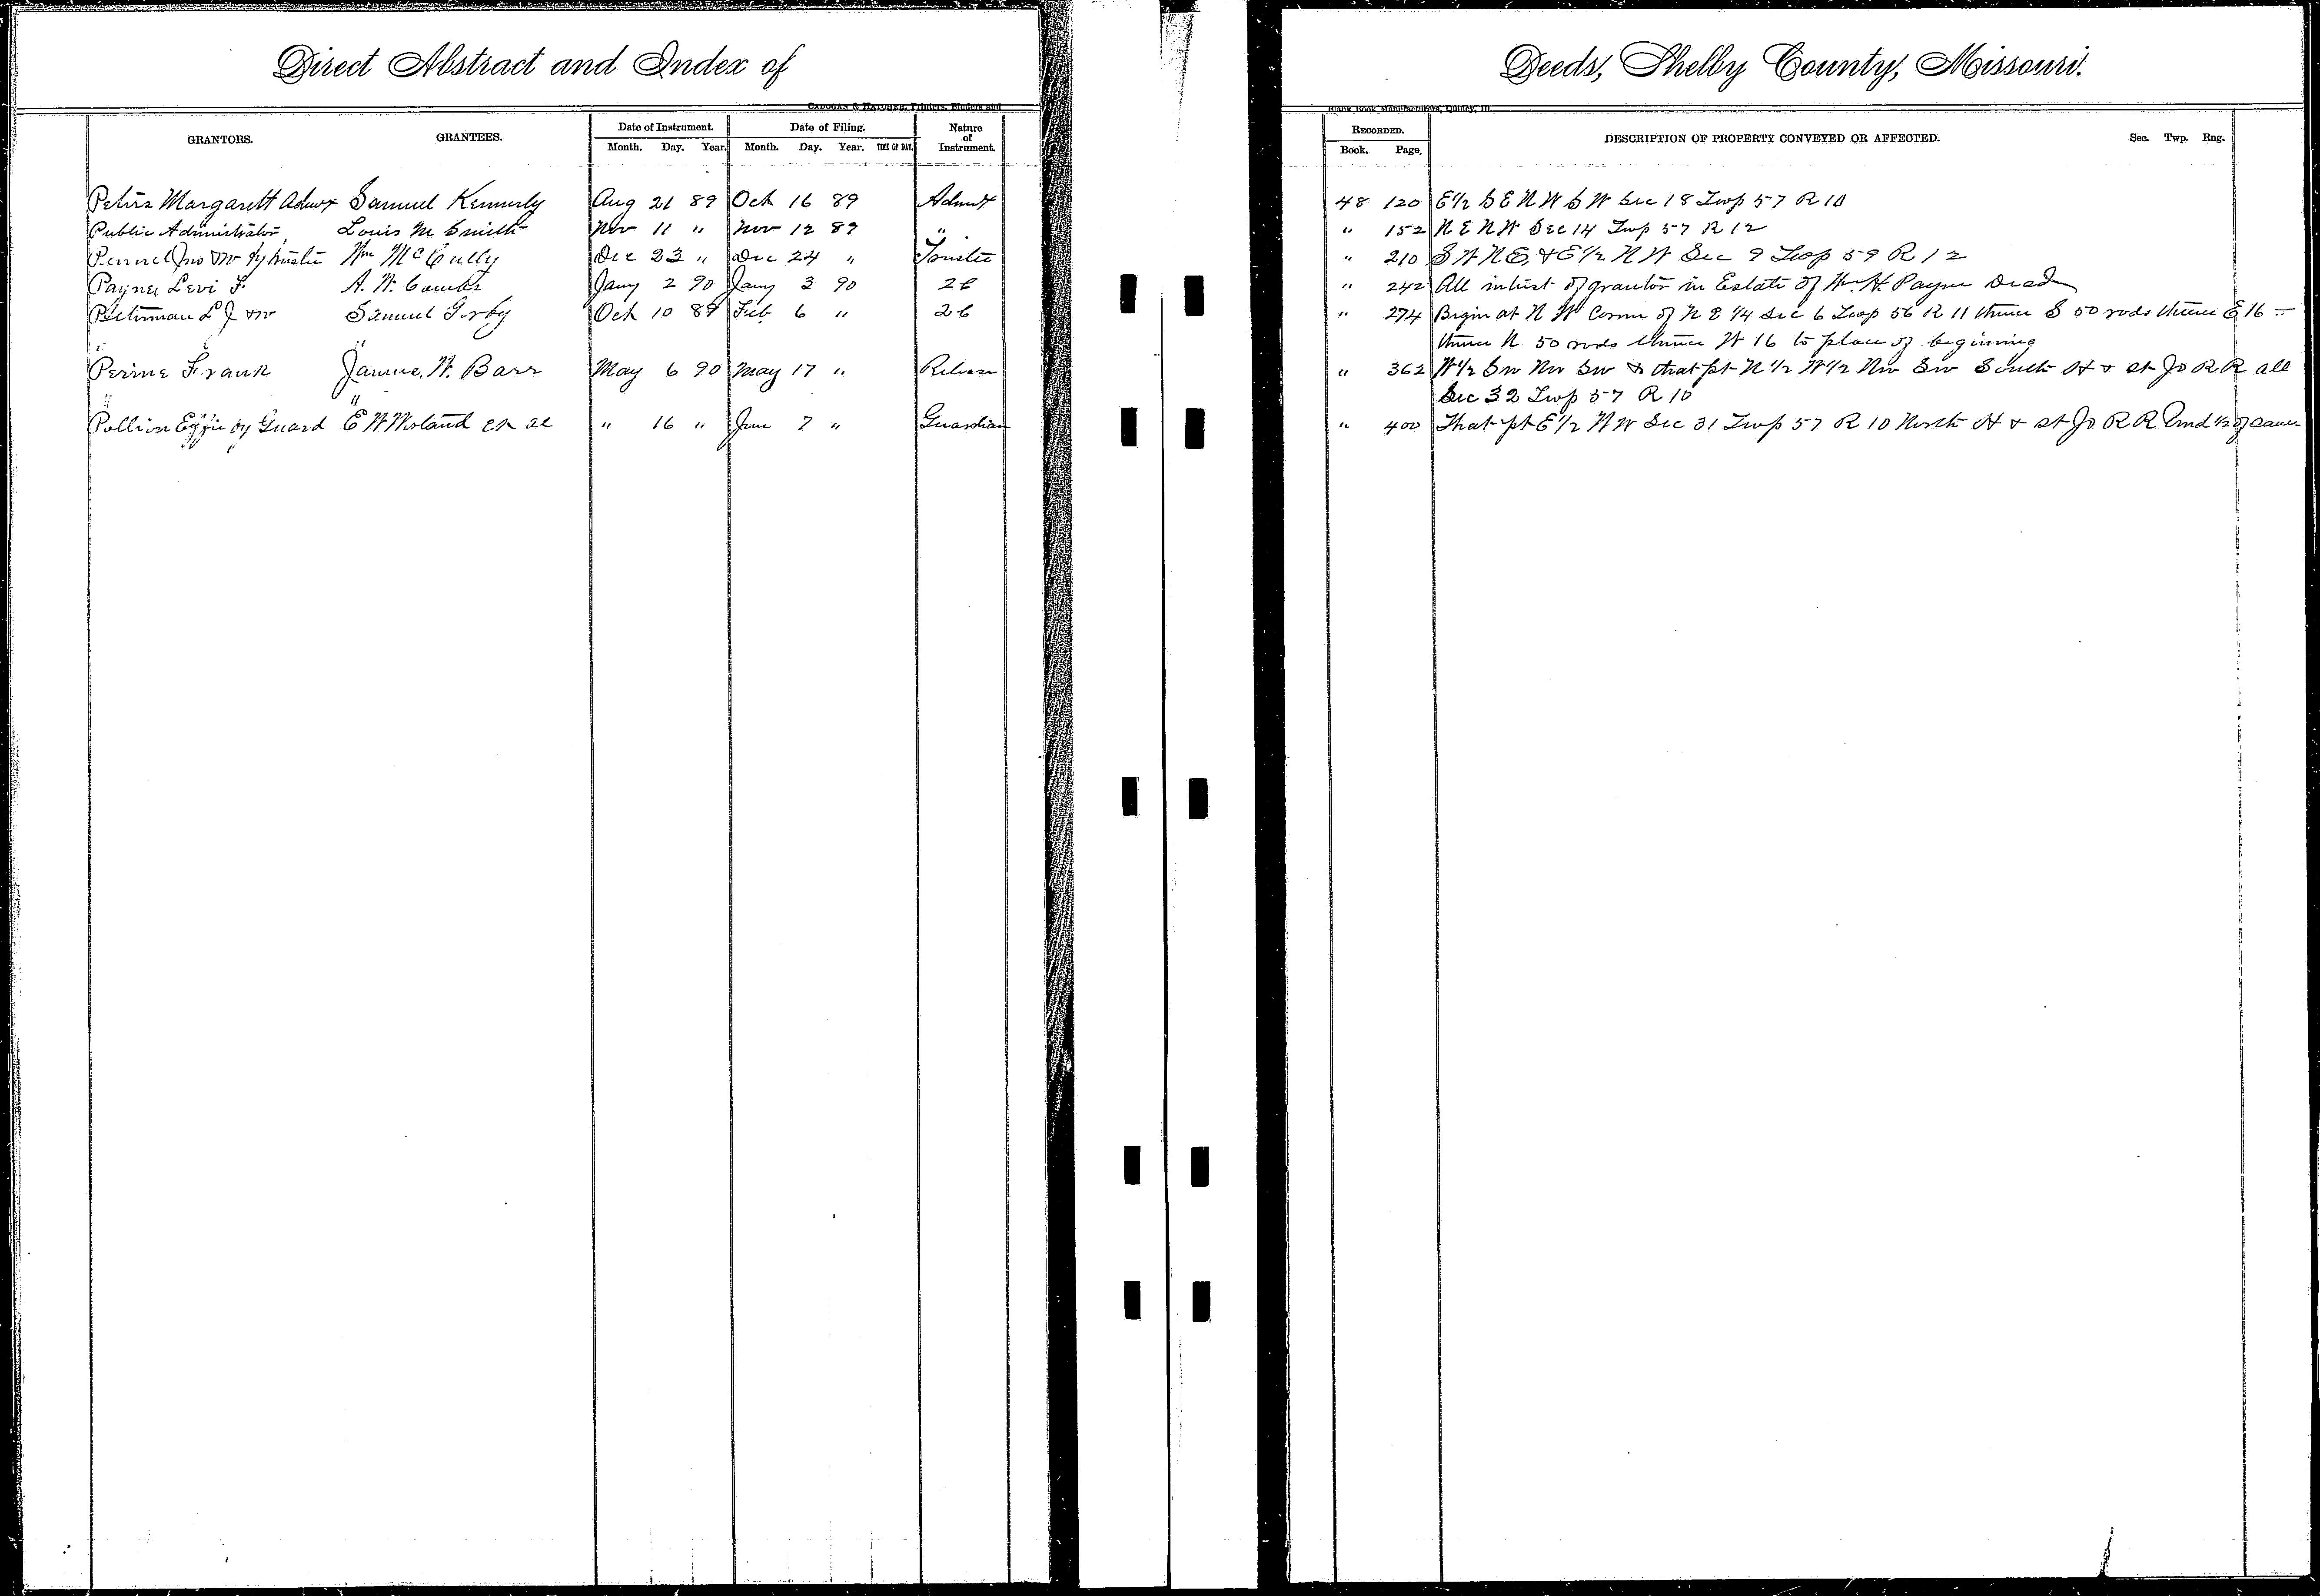 Direct Abstract and Index of
Deeds, Shelby County, Missouri.
CADOGAN & HATCHER, Printers, Binders and
Blank Book Manufacturers, Quincy, Ill.
GRANTORS. GRANTEES. Date of Instrument. Date of Filing. Nature of Instrument. RECORDED. DESCRIPTION OF PROPERTY CONVEYED OR AFFECTED. Sec. Twp. Rng.
Month. Day. Year. Month. Day. Year. TIME OF DAY. Book. Page.
Peters Margarett Admx Samuel Kennerly Aug 21 89 Oct 16 89 Admx 48 120 E 1/2 S E N W S W Sec 18 Twp 57 R 10
Public Administrator, Louis M Smith Nov 11 " Nov 12 89 " " 152 N E N W Sec 14 Twp 57 R 12
Pennel Jno W by trustee Wm McCully Dec 23 " Dec 24 " Trustee " 210 S W N E, & E 1/2 N W Sec 9 Twp 59 R 12
Payne Levi F. A. W. Combs Jany 2 90 Jany 3 90 2 " 242 All intrest of grantor in Estate of Wm H. Payne Dead
Peterman L J Samuel Gorby Oct 10 89 Feb 6 " 2 " 274 Begin at N W Corner of N E 1/4 Sec 6 Twp 56 R 11 thence S 50 rods thence E 16 "
thence N 50 rods thence W 16 to place of beginning
Perine Frank W. Barr May 6 90 May 17 " Release " 362 W 1/2 Sw Nw Sw & that pt N 1/2 W 1/2 Nw Sw South H & St Jo R R all
Sec 32 Twp 57 R 10
" "
Effie by Guard E W Worland et al " 16 " June 7 " Guardian " 400 That pt E 1/2 N W Sec 31 Twp 57 R 10 North H & St Jo R R Und 1/2 of same